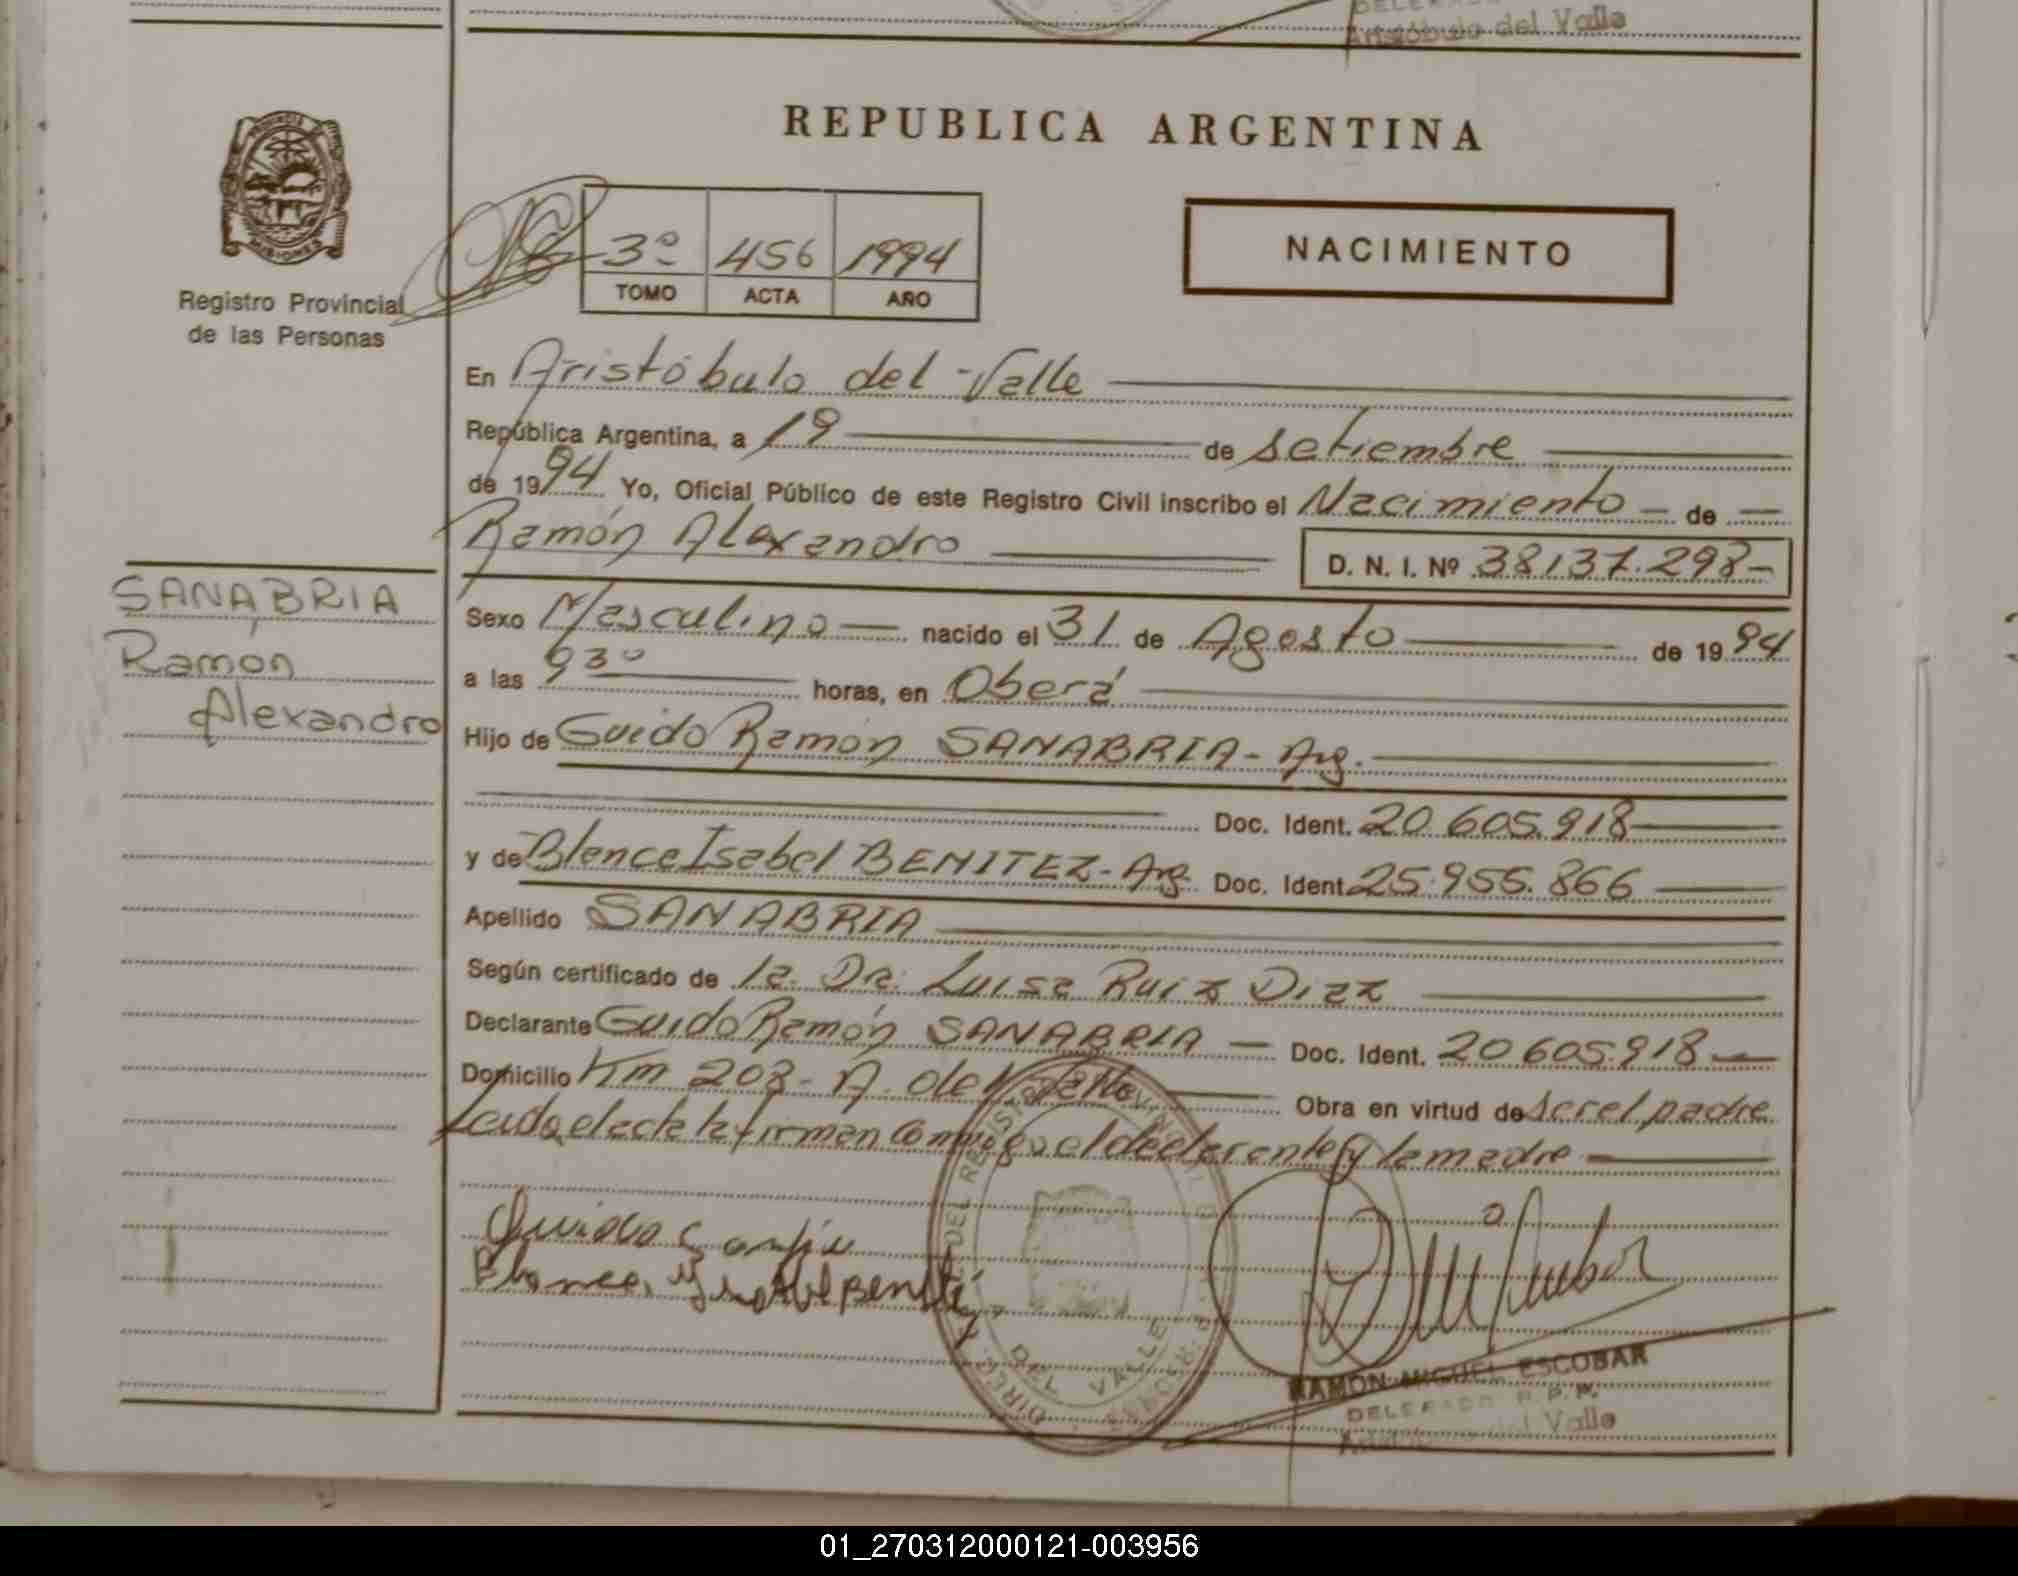 Aristóbulo del Valle
REPUBLICA ARGENTINA
PROVINCIA
MISIONES
Registro Provincial
de las Personas
3º 456 1994
TOMO ACTA AÑO
NACIMIENTO
En Aristóbulo del Valle
República Argentina, a 19 de setiembre
de 1994 Yo, Oficial Público de este Registro Civil inscribo el Nacimiento de
Ramón Alexandro D. N. I. Nº 38137.298-
SANABRIA
Ramón
Alexandro
Sexo Masculino nacido el 31 de Agosto de 1994
a las 930 horas, en Oberá
Hijo de Guido Ramón SANABRIA - Arg.
Doc. Ident. 20.605.918
y de Blanca Isabel BENITEZ - Arg. Doc. Ident. 25.955.866
Apellido SANABRIA
Según certificado de la. Dra. Luisa Ruiz Diaz
Declarante Guido Ramón SANABRIA - Doc. Ident. 20.605.918
Domicilio Km 203 - A. del Valle Obra en virtud de ser el padre
Leida el acta la firman conmigo el declarante y la madre
RAMON MIGUEL ESCOBAR
DELEGADO R. P. P.
Aristóbulo del Valle
DEL VALLE
01_270312000121-003956